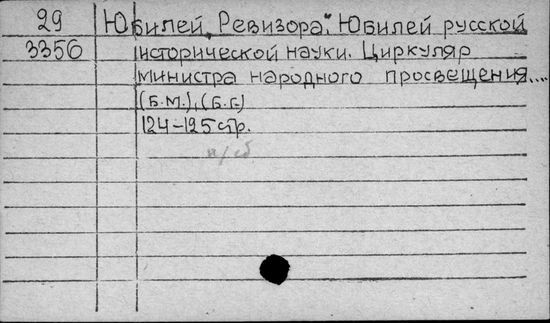 29 Юбилей „Ревизора". Юбилей русской
3356 исторической науки. Циркуляр
министра народного просвещения....
(Б.М.), (Б.г.)
124-125 стр.
н/сб